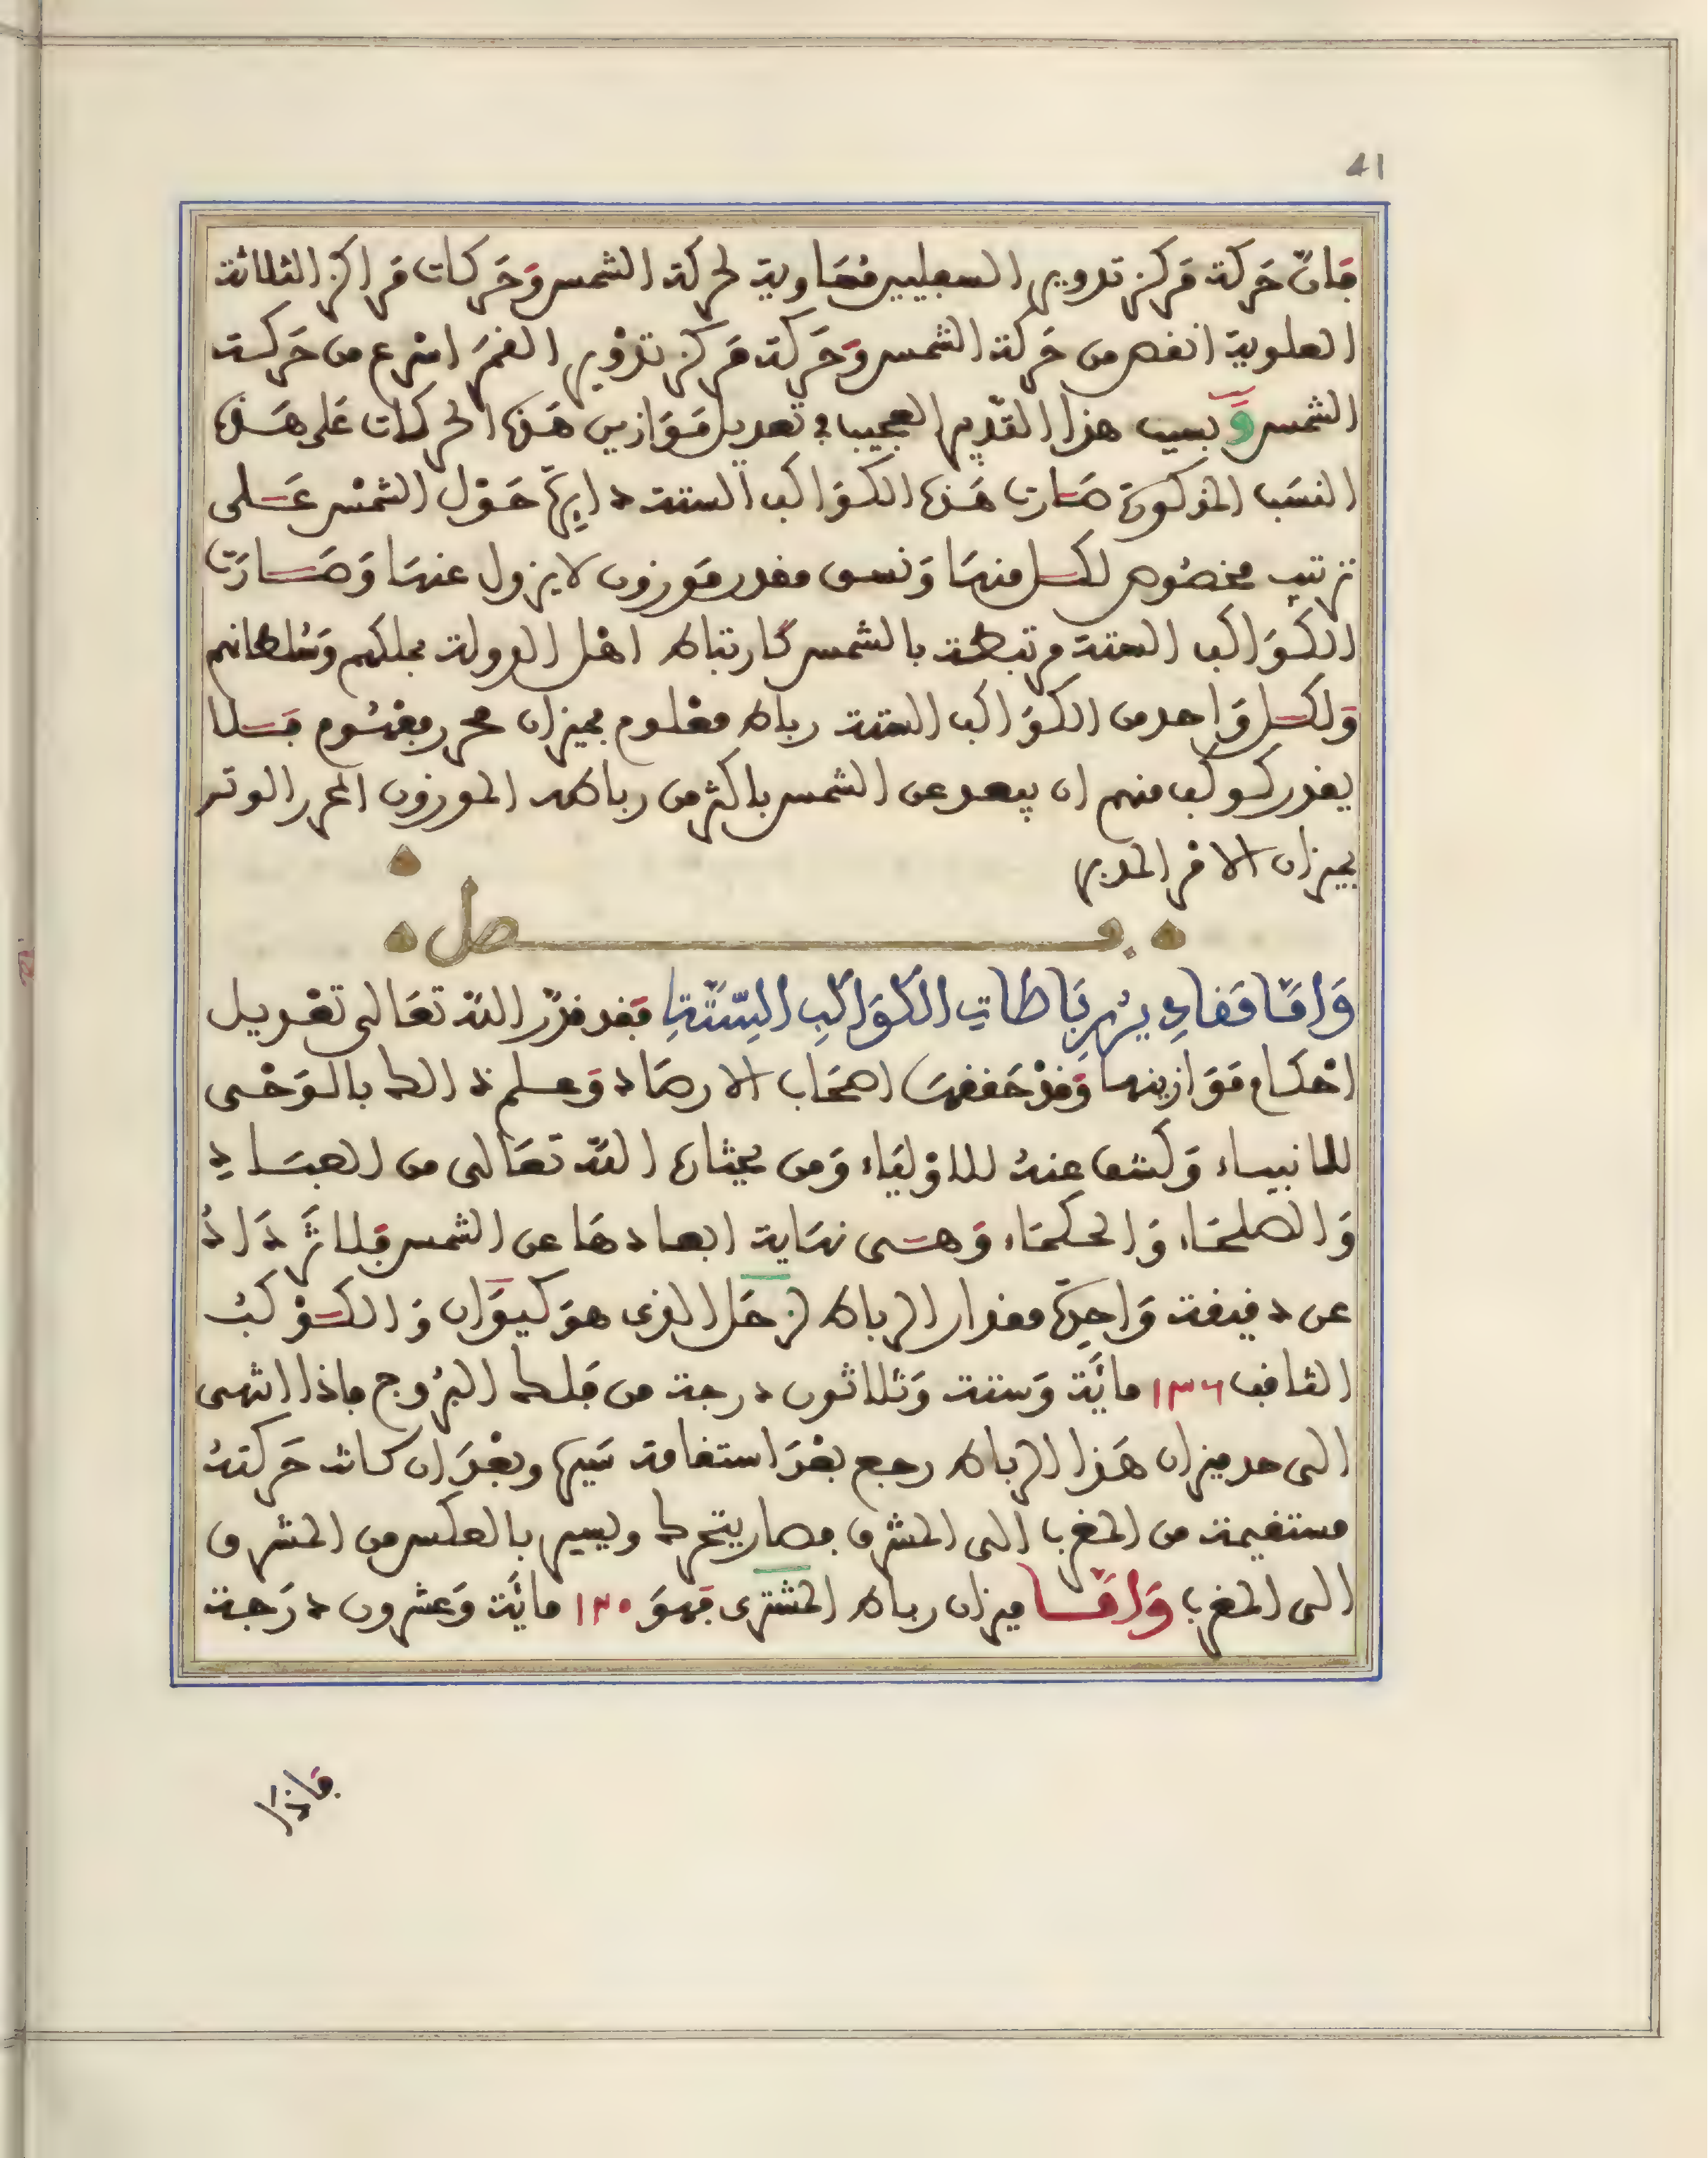 41
فانّ حَركة مَركز تدوير السفليين مُسَاوية لحركة الشمس وَحَركات مَراكز الثلاثة
العلوية انقص من حَركة الشمس وَحَركة مَركز تدْوير القمَر اسْرع من حَركة
الشمس وَبسبب هذا التقدير العجيب في تعديل مَوَازين هَذه الحركات عَلى هَذه
النسَب المذكورة صَارت هَذه الكوَاكب الستة دايرَة حَوْل الشمْس عَلى
ترتيب مخصُوص لكل منهَا وَنسق مقدر مَوزون لا يزول عنهَا وَصَارَت
الكوَاكب الستة مرتبطة بالشمس كارتباط اهْل الدولة بملكهم وَسُلطانهم
وَلكل وَاحد من الكوَاكب الستة رباط معْلوم بميزان محرر مقسُوم فَلا
يقدر كوكب منهم ان يبعد عن الشمس باكثر من رباطه الموزون المحرر الوتر
بميزان الامر المدبر
فصل
وَامّا مَقادِيرُ رِبَاطَاتِ الكَوَاكِبِ السِّتَّةِ فقد قدّر اللّه تعَالى تعْديل
احْكام مَوَازينها وَقدْ حَققهَا اصحَاب الارصَاد وَعلم ذالك بالوَحْى
للانبياء وَكشف عنهُ للاوْليَاء وَمن يختاره اللّه تعَالى من العبَادِ
وَالصلحَاء وَالحكمَاء وَهى نهَاية ابعادهَا عن الشمس فَلا تزَدَادُ
عن دقيقة وَاحِدَة مقدار الرباط لزحَل الذى هوَ كيوَان وَالكوْكبُ
الثاقب ١٣٦ مائَة وَستة وَثلاثون درجة من فَلك البرُوج فاذا انتهى
الى حد ميزان هَذا الرباط رجع بعْدَ استقامة سَيره وبعْدَ ان كانت حَركتهُ
مستقيمة من المغرب الى المشرق فصار يتحرك ويسير بالعكس من المشرق
الى المغرب وَامّا ميزان رباط المشترى فهوَ ١٢٠ مائَة وَعشرون درَجة
فاذَا